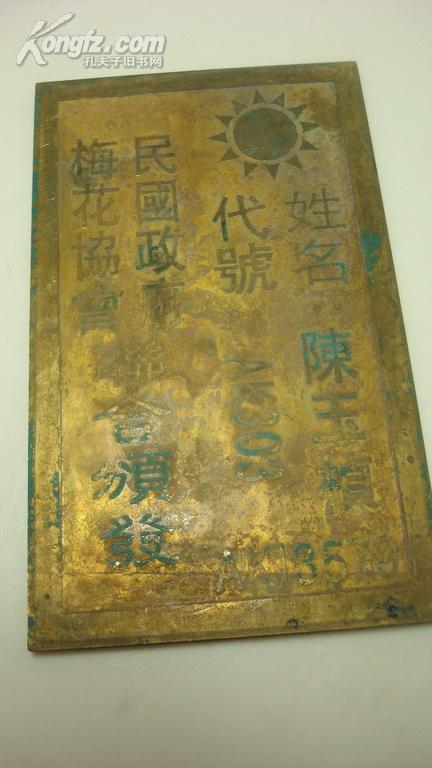 Kongfz.com
孔夫子旧书网
姓名 陳玉
代號 AK303
民國政府
梅花協會
聯合頒發